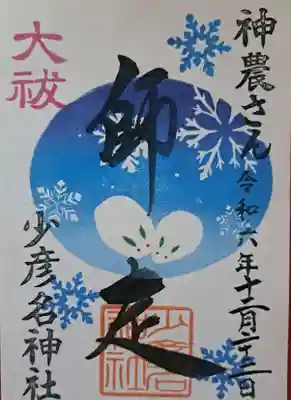 神農さん 令和六年十二月二十二日
師走
大祓
少彦名神社
少彦名
神社